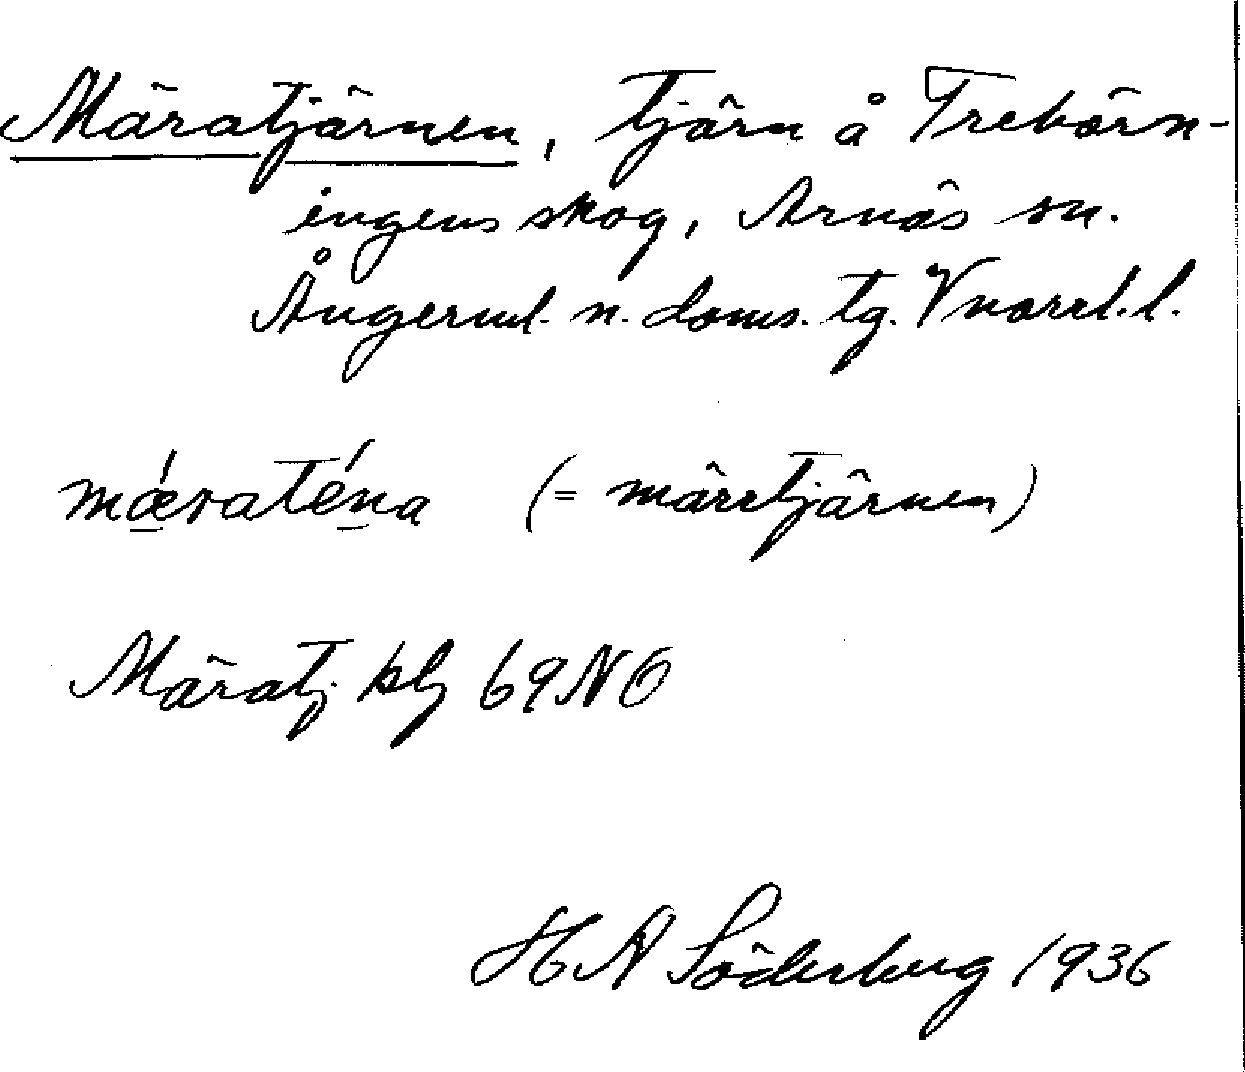 Märatjärnen, tjärn å Trebärn-
ingens skog, Arnäs sn.
Ångerml. n. doms. tg. Vnorrl. l.
mǽraténa (= märrtjärnen)
Märatj kbl 69 NO
H A Söderberg 1936